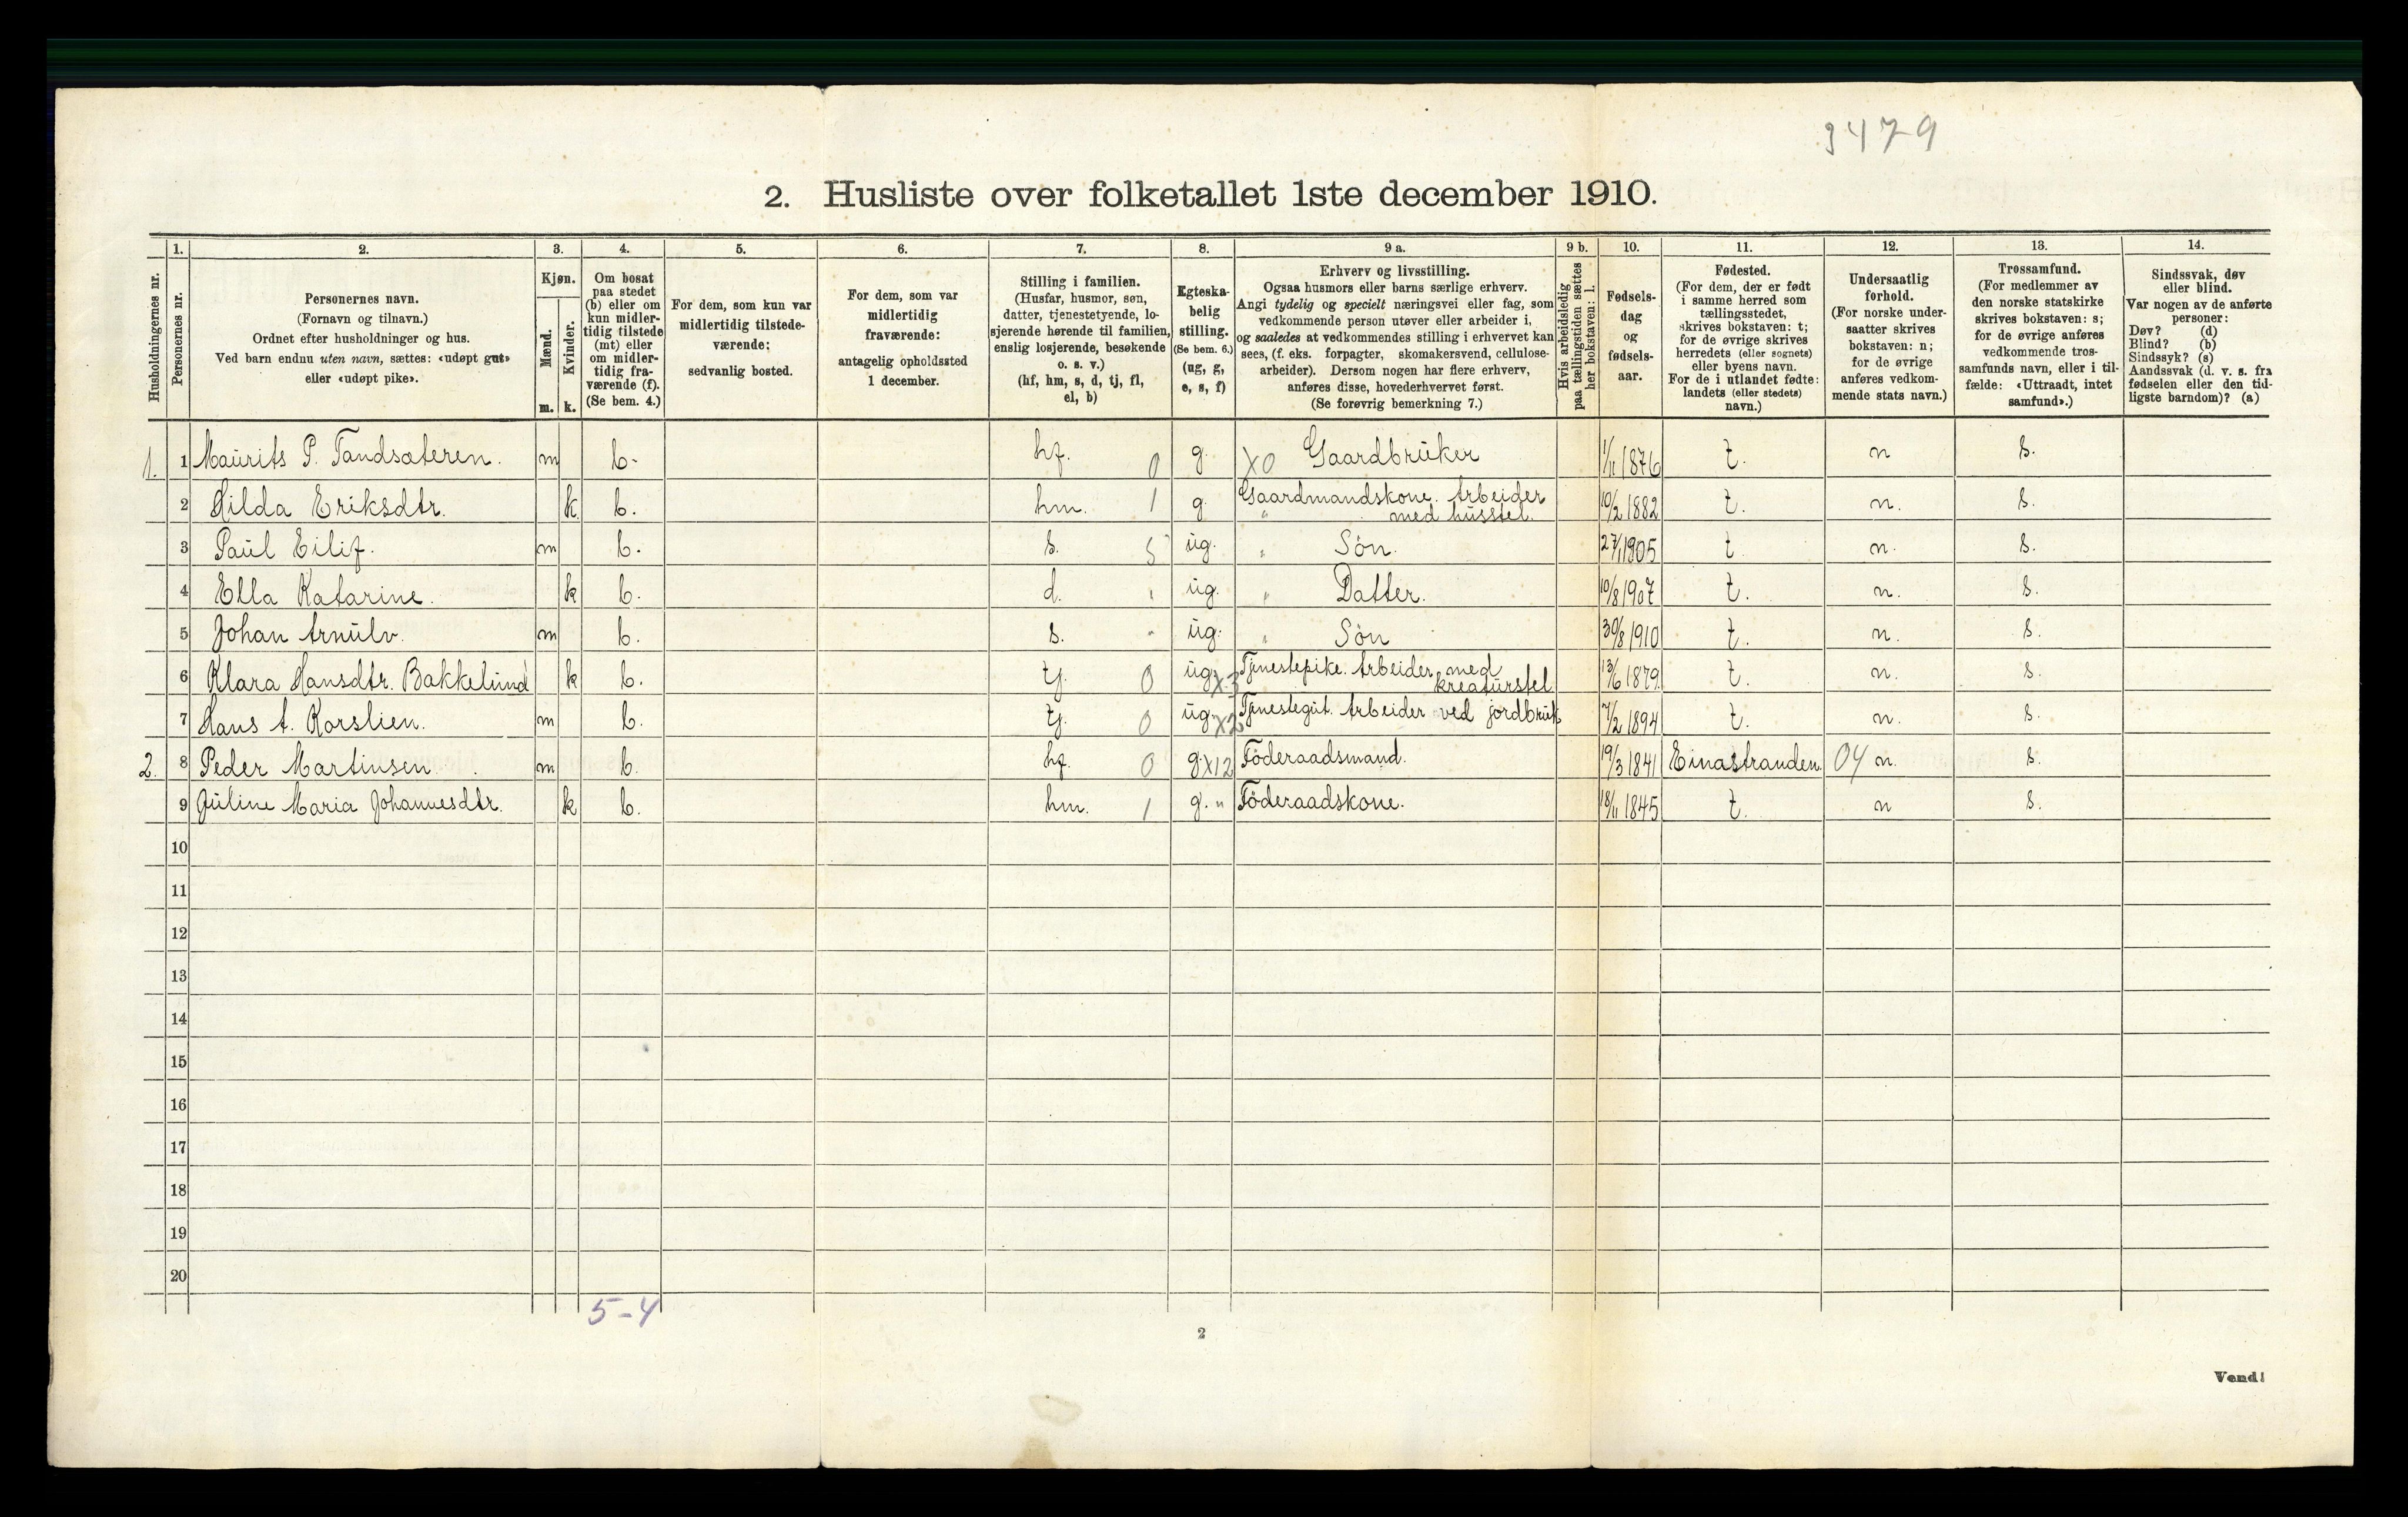 3479
2. Husliste over folketallet 1ste december 1910.
Husholdningernes nr.
1.
Personernes nr.
2.
Personernes navn.
(Fornavn og tilnavn.)
Ordnet efter husholdninger og hus.
Ved barn endnu uten navn, sættes: «udøpt gut»
eller «udøpt pike».
3.
Kjøn.
Mænd.
m.
Kvinder.
k.
4.
Om bosat
paa stedet
(b) eller om
kun midler-
tidig tilstede
(mt) eller
om midler-
tidig fra-
værende (f).
(Se bem. 4.)
5.
For dem, som kun var
midlertidig tilstede-
værende:
sedvanlig bosted.
6.
For dem, som var
midlertidig
fraværende:
antagelig opholdssted
1 december.
7.
Stilling i familien.
(Husfar, husmor, søn,
datter, tjenestetyende, lo-
sjerende hørende til familien,
enslig losjerende, besøkende
o. s. v.)
(hf, hm, s, d, tj, fl,
el, b)
8.
Egteska-
belig
stilling.
(Se bem. 6.)
(ug, g,
e, s, f)
9 a.
Erhverv og livsstilling.
Ogsaa husmors eller barns særlige erhverv.
Angi tydelig og specielt næringsvei eller fag, som
vedkommende person utøver eller arbeider i,
og saaledes at vedkommendes stilling i erhvervet kan
sees, (f. eks. forpagter, skomakersvend, cellulose-
arbeider). Dersom nogen har flere erhverv,
anføres disse, hovederhvervet først.
(Se forøvrig bemerkning 7.)
9 b.
Hvis arbeidsledig
paa tællingstiden sættes
her bokstaven: l.
10.
Fødsels-
dag
og
fødsels-
aar.
11.
Fødested.
(For dem, der er født
i samme herred som
tællingsstedet,
skrives bokstaven: t;
for de øvrige skrives
herredets (eller sognets)
eller byens navn.
For de i utlandet fødte:
landets (eller stedets)
navn.)
12.
Undersaatlig
forhold.
(For norske under-
saatter skrives
bokstaven: n;
for de øvrige
anføres vedkom-
mende stats navn.)
13.
Trossamfund.
(For medlemmer av
den norske statskirke
skrives bokstaven: s;
for de øvrige anføres
vedkommende tros-
samfunds navn, eller i til-
fælde: «Uttraadt, intet
samfund».)
14.
Sindssvak, døv
eller blind.
Var nogen av de anførte
personer:
Døv? (d)
Blind? (b)
Sindssyk? (s)
Aandssvak (d. v. s. fra
fødselen eller den tid-
ligste barndom)? (a)
1. 1 Maurits P. Tandsæteren. m b. hf. 0 g. X0 Gaardbruker 1/11 1876 t. n s.
2 Hilda Eriksdtr. k b. hm. 1 g. Gaardmandskone. Arbeider 10/2 1882 t. n. s.
" med husstel.
3 Paul Eilif. m b. s. 5 ug. " Søn. 27/1 1905 t n. s.
4 Ella Katarine. k b. d. " ug. " Datter. 10/8 1907 t. n. s.
5 Johan Arnulv. m b. s. " ug. " Søn 30/8 1910 t. n. s.
6 Klara Hansdtr. Bakkelund k b. tj. 0 ug. X3 Tjenestepike. Arbeider med 13/6 1879 t. n. s.
kreaturstel
7 Hans A. Korslien. m b. tj. 0 ug. X2 Tjenestegut. Arbeider ved jordbruk 7/2 1894 t. n. s.
2. 8 Peder Martinsen m b. hf. 0 g. X12 Föderaadsmand. 19/3 1841 Einastranden. 04 n. s.
9 Juline Maria Johannesdtr. k b. hm. 1 g. " Föderaadskone. 18/11 1845 t. n s.
10
11
12
13
14
15
16
17
18
19
20
5-4
2
Vend!